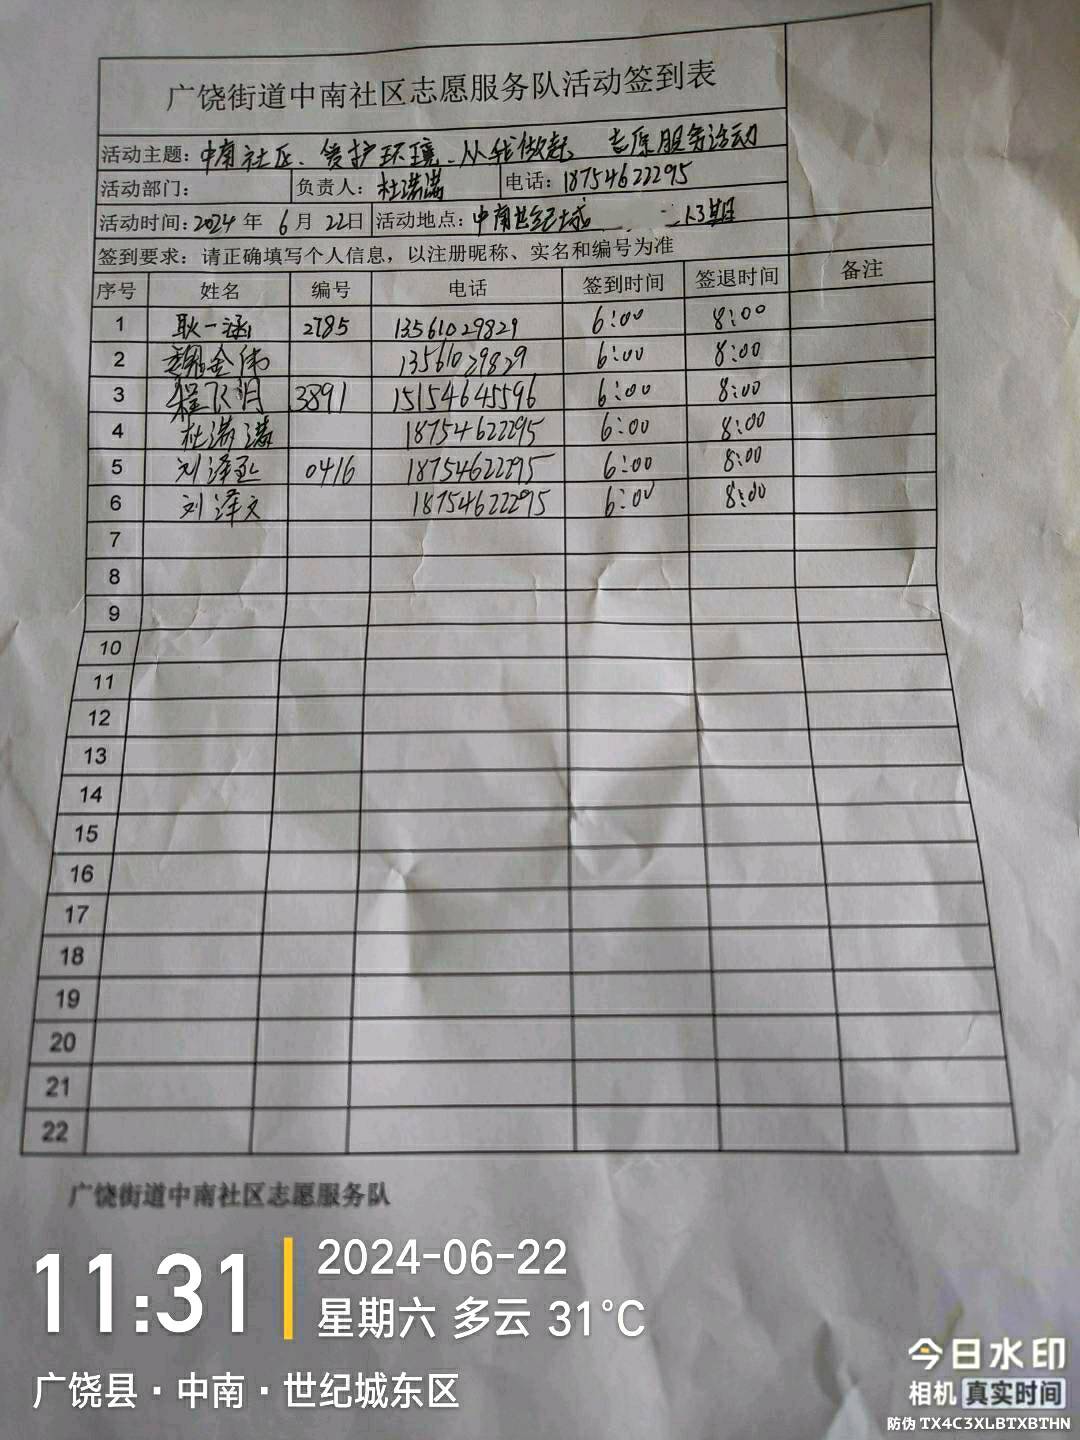 广饶街道中南社区志愿服务队活动签到表
活动主题：中南社区、爱护环境、从我做起、志原服务活动
活动部门： 负责人：杜满满 电话：18754622295
活动时间：2024年 6月 22日 活动地点：中南世纪城 1.3期
签到要求：请正确填写个人信息，以注册昵称、实名和编号为准
序号 姓名 编号 电话 签到时间 签退时间 备注
1 耿一涵 2785 13561029829 6:00 8:00
2 魏金伟 13561029829 6:00 8:00
3 程 明 3891 15154645596 6:00 8:00
4 杜满满 18754622295 6:00 8:00
5 刘泽 0416 18754622295 6:00 8:00
6 刘泽文 18754622295 6:00 8:00
7
8
9
10
11
12
13
14
15
16
17
18
19
20
21
22
广饶街道中南社区志愿服务队
11:31
2024-06-22
星期六 多云 31°C
广饶县·中南·世纪城东区
今日水印
相机 真实时间
防伪 TX4C3XLBTXBTHN